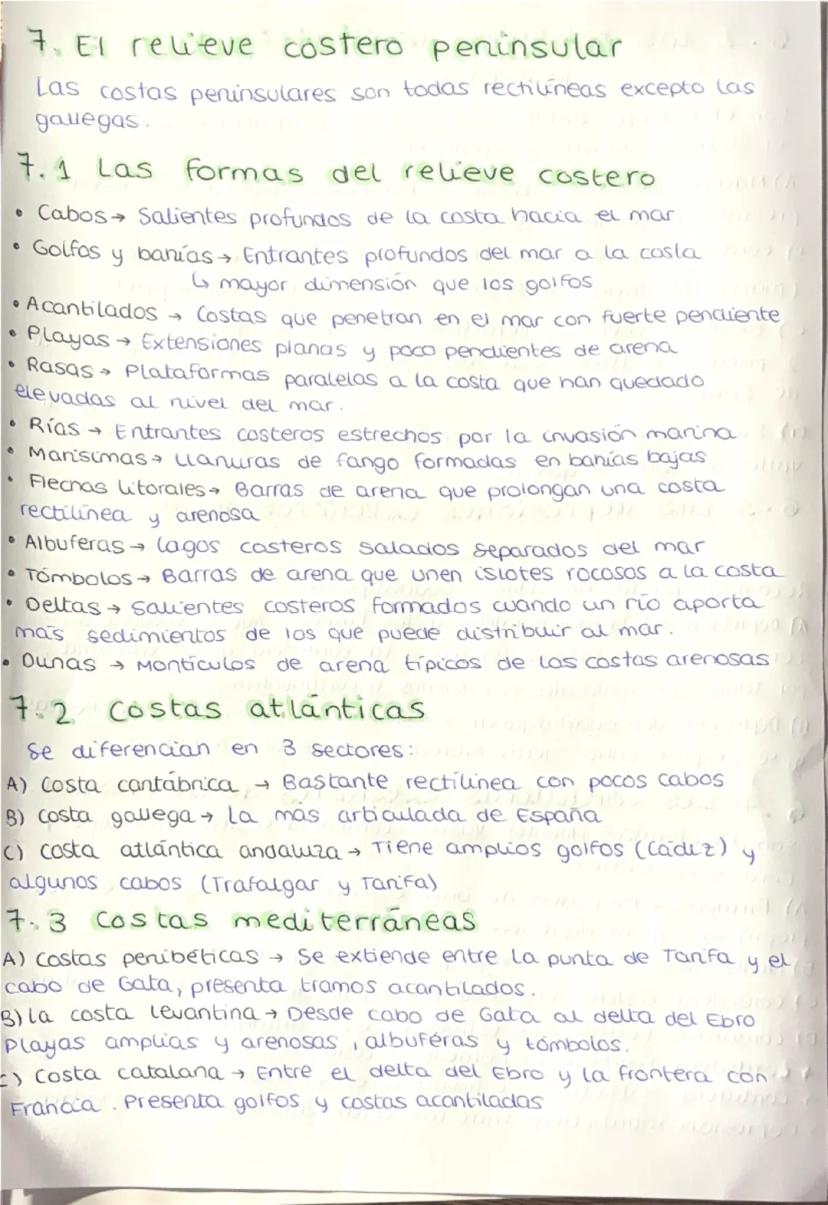 7. El relieve costero peninsular
Las costas peninsulares son todas rectilíneas excepto las
gallegas.
7.1 Las formas del relieve costero
• Cabos → Salientes profundos de la costa hacia el mar
• Golfos y bahías → Entrantes profundos del mar a la costa
↳ mayor dimensión que los golfos
• Acantilados → Costas que penetran en el mar con fuerte pendiente
• Playas → Extensiones planas y poco pendientes de arena
• Rasas → Plataformas paralelas a la costa que han quedado
elevadas al nivel del mar.
• Rías → Entrantes costeros estrechos por la invasión marina
• Marismas → Llanuras de fango formadas en bahías bajas
• Flechas litorales → Barras de arena que prolongan una costa
rectilínea y arenosa
• Albuferas → Lagos costeros salados separados del mar
• Tómbolos → Barras de arena que unen islotes rocosos a la costa
• Deltas → Salientes costeros formados cuando un río aporta
más sedimientos de los que puede distribuir al mar.
• Dunas → Montículos de arena típicos de las costas arenosas
7.2 Costas atlánticas
Se diferencian en 3 sectores:
A) Costa cantábrica → Bastante rectilínea con pocos cabos
B) Costa gallega → La más articulada de España
C) Costa atlántica andaluza → Tiene amplios golfos (Cádiz) y
algunos cabos (Trafalgar y Tarifa)
7.3 Costas mediterráneas
A) Costas penibéticas → Se extiende entre la punta de Tarifa y el
cabo de Gata, presenta tramos acantilados.
B) La costa levantina → Desde cabo de Gata al delta del Ebro
Playas amplias y arenosas, albuferas y tómbolos.
C) Costa catalana → Entre el delta del Ebro y la frontera con
Francia. Presenta golfos y costas acantiladas